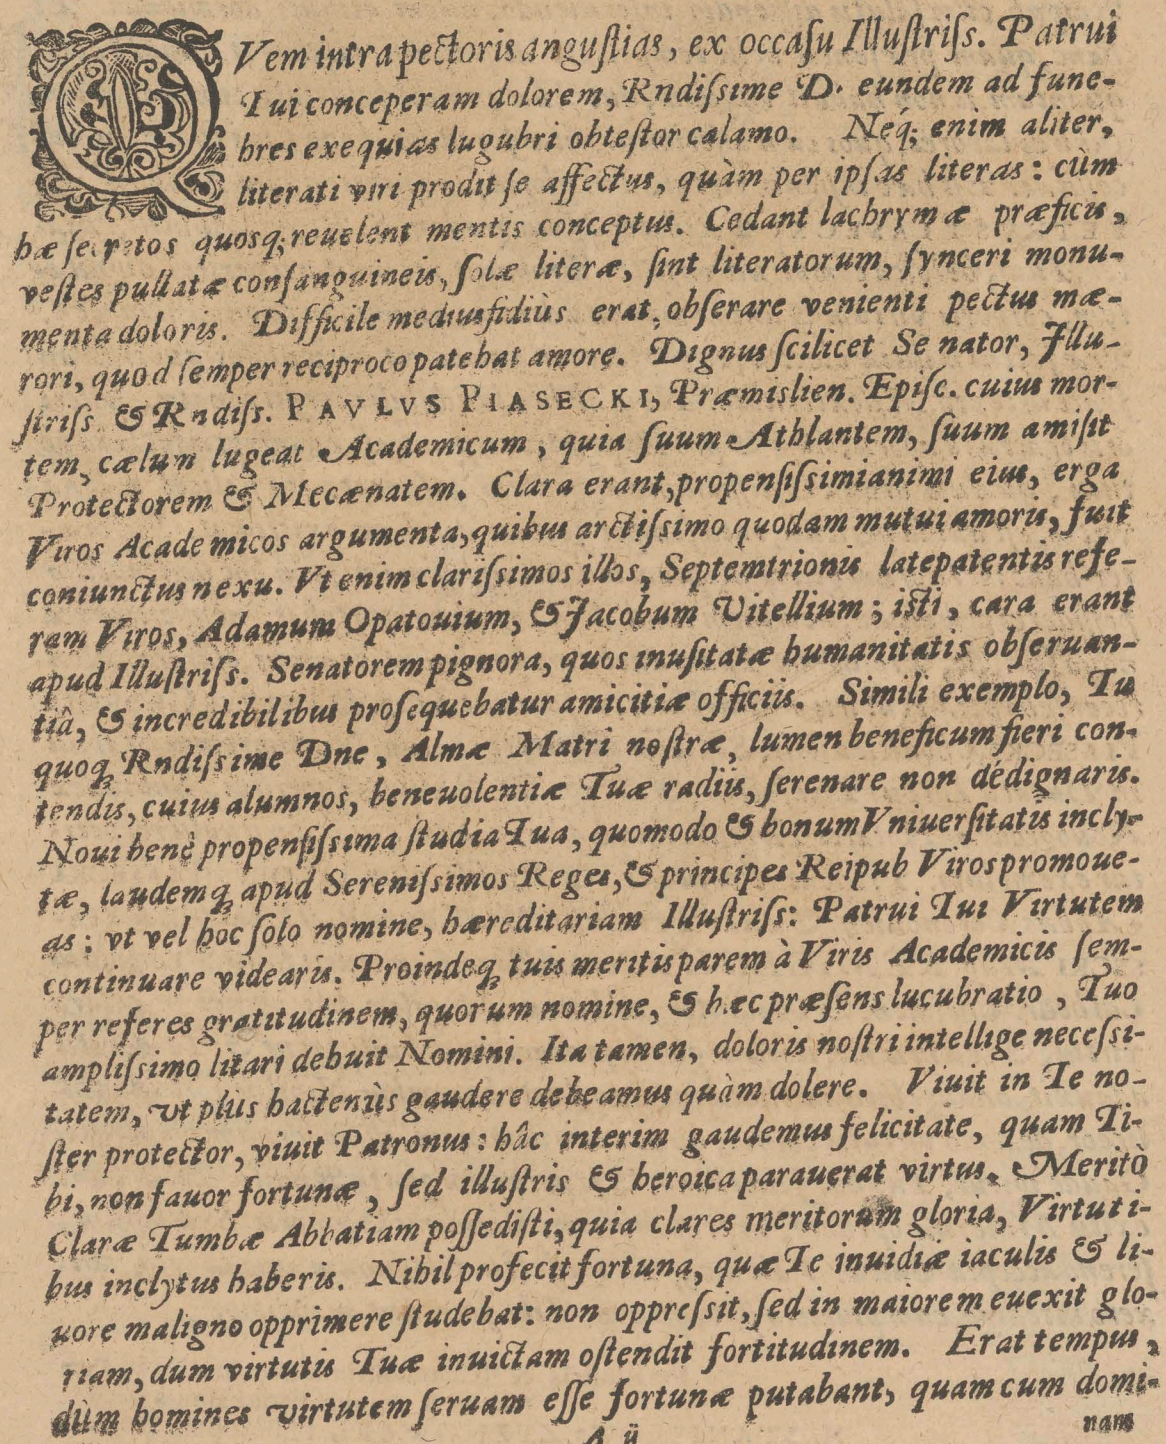 QVem intra pectoris anguſtias, ex occaſu Illuſtriſs. Patrui
Tui conceperam dolorem, Rndiſsime D. eundem ad fune-
bres exequias lugubri obteſtor calamo. Neq; enim aliter,
literati viri prodit ſe affectus, quàm per ipſas literas: cùm
hæ ſecretos quosq; reuelent mentis conceptus. Cedant lachrymæ præficis,
veſtes pullatæ conſanguineis, ſolæ literæ, ſint literatorum, ſynceri monu-
menta doloris. Difficile mediusfidiùs erat, obſerare venienti pectus mæ-
rori, quod ſemper reciproco patebat amore. Dignus ſcilicet Senator, Illu-
ſtriſs & Rndiſs. PAVLVS PIASECKI, Præmislien. Epiſc. cuius mor-
tem, cælum lugeat Academicum, quia ſuum Athlantem, ſuum amiſit
Protectorem & Mecænatem. Clara erant, propenſiſsimi animi eius, erga
Viros Academicos argumenta, quibus arctiſsimo quodam mutui amoris, fuit
coniunctus nexu. Vt enim clariſsimos illos, Septemtrionis latepatentis refe-
ram Viros, Adamum Opatouium, & Jacobum Vitellium; iſti, cara erant
apud Illuſtriſs. Senatorem pignora, quos inuſitatæ humanitatis obſeruan-
tiâ, & incredibilibus proſequebatur amicitiæ officiis. Simili exemplo, Tu
quoq; Rndiſsime Dne, Almæ Matri noſtræ, lumen beneficum fieri con-
tendis, cuius alumnos, beneuolentiæ Tuæ radiis, ſerenare non dédignaris.
Noui benè propenſiſsima ſtudia Tua, quomodo & bonum Vniuerſitatis incly-
tæ, laudemq; apud Sereniſsimos Reges, & principes Reipub Viros promoue-
as: vt vel hoc ſolo nomine, hæreditariam Illuſtriſs: Patrui Tui Virtutem
continuare videaris. Proindeq; tuis meritis parem à Viris Academicis ſem-
per referes gratitudinem, quorum nomine, & hæc præſens lucubratio, Tuo
ampliſsimo litari debuit Nomini. Ita tamen, doloris noſtri intellige neceſsi-
tatem, vt plus hactenùs gaudere debeamus quàm dolere. Viuit in Te no-
ſter protector, viuit Patronus: hâc interim gaudemus felicitate, quam Ti-
bi, non fauor fortunæ, ſed illuſtris & heroica parauerat virtus. Meritò
Claræ Tumbæ Abbatiam poſſediſti, quia clares meritorum gloria, Virtuti-
bus inclytus haberis. Nihil profecit fortuna, quæ Te inuidiæ iaculis & li-
uore maligno opprimere ſtudebat: non oppreſsit, ſed in maiorem euexit glo-
riam, dum virtutis Tuæ inuictam oſtendit fortitudinem. Erat tempus,
dùm homines virtutem ſeruam eſſe fortunæ putabant, quam cum domi-
A ij nam